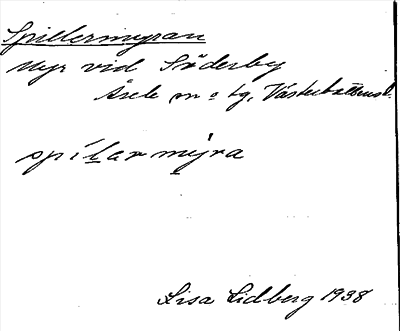 Spillermyran
Myr vid Söderby
Åsele m o tg, Västerbottens l.
spílar mýra
Lisa Lidberg 1938